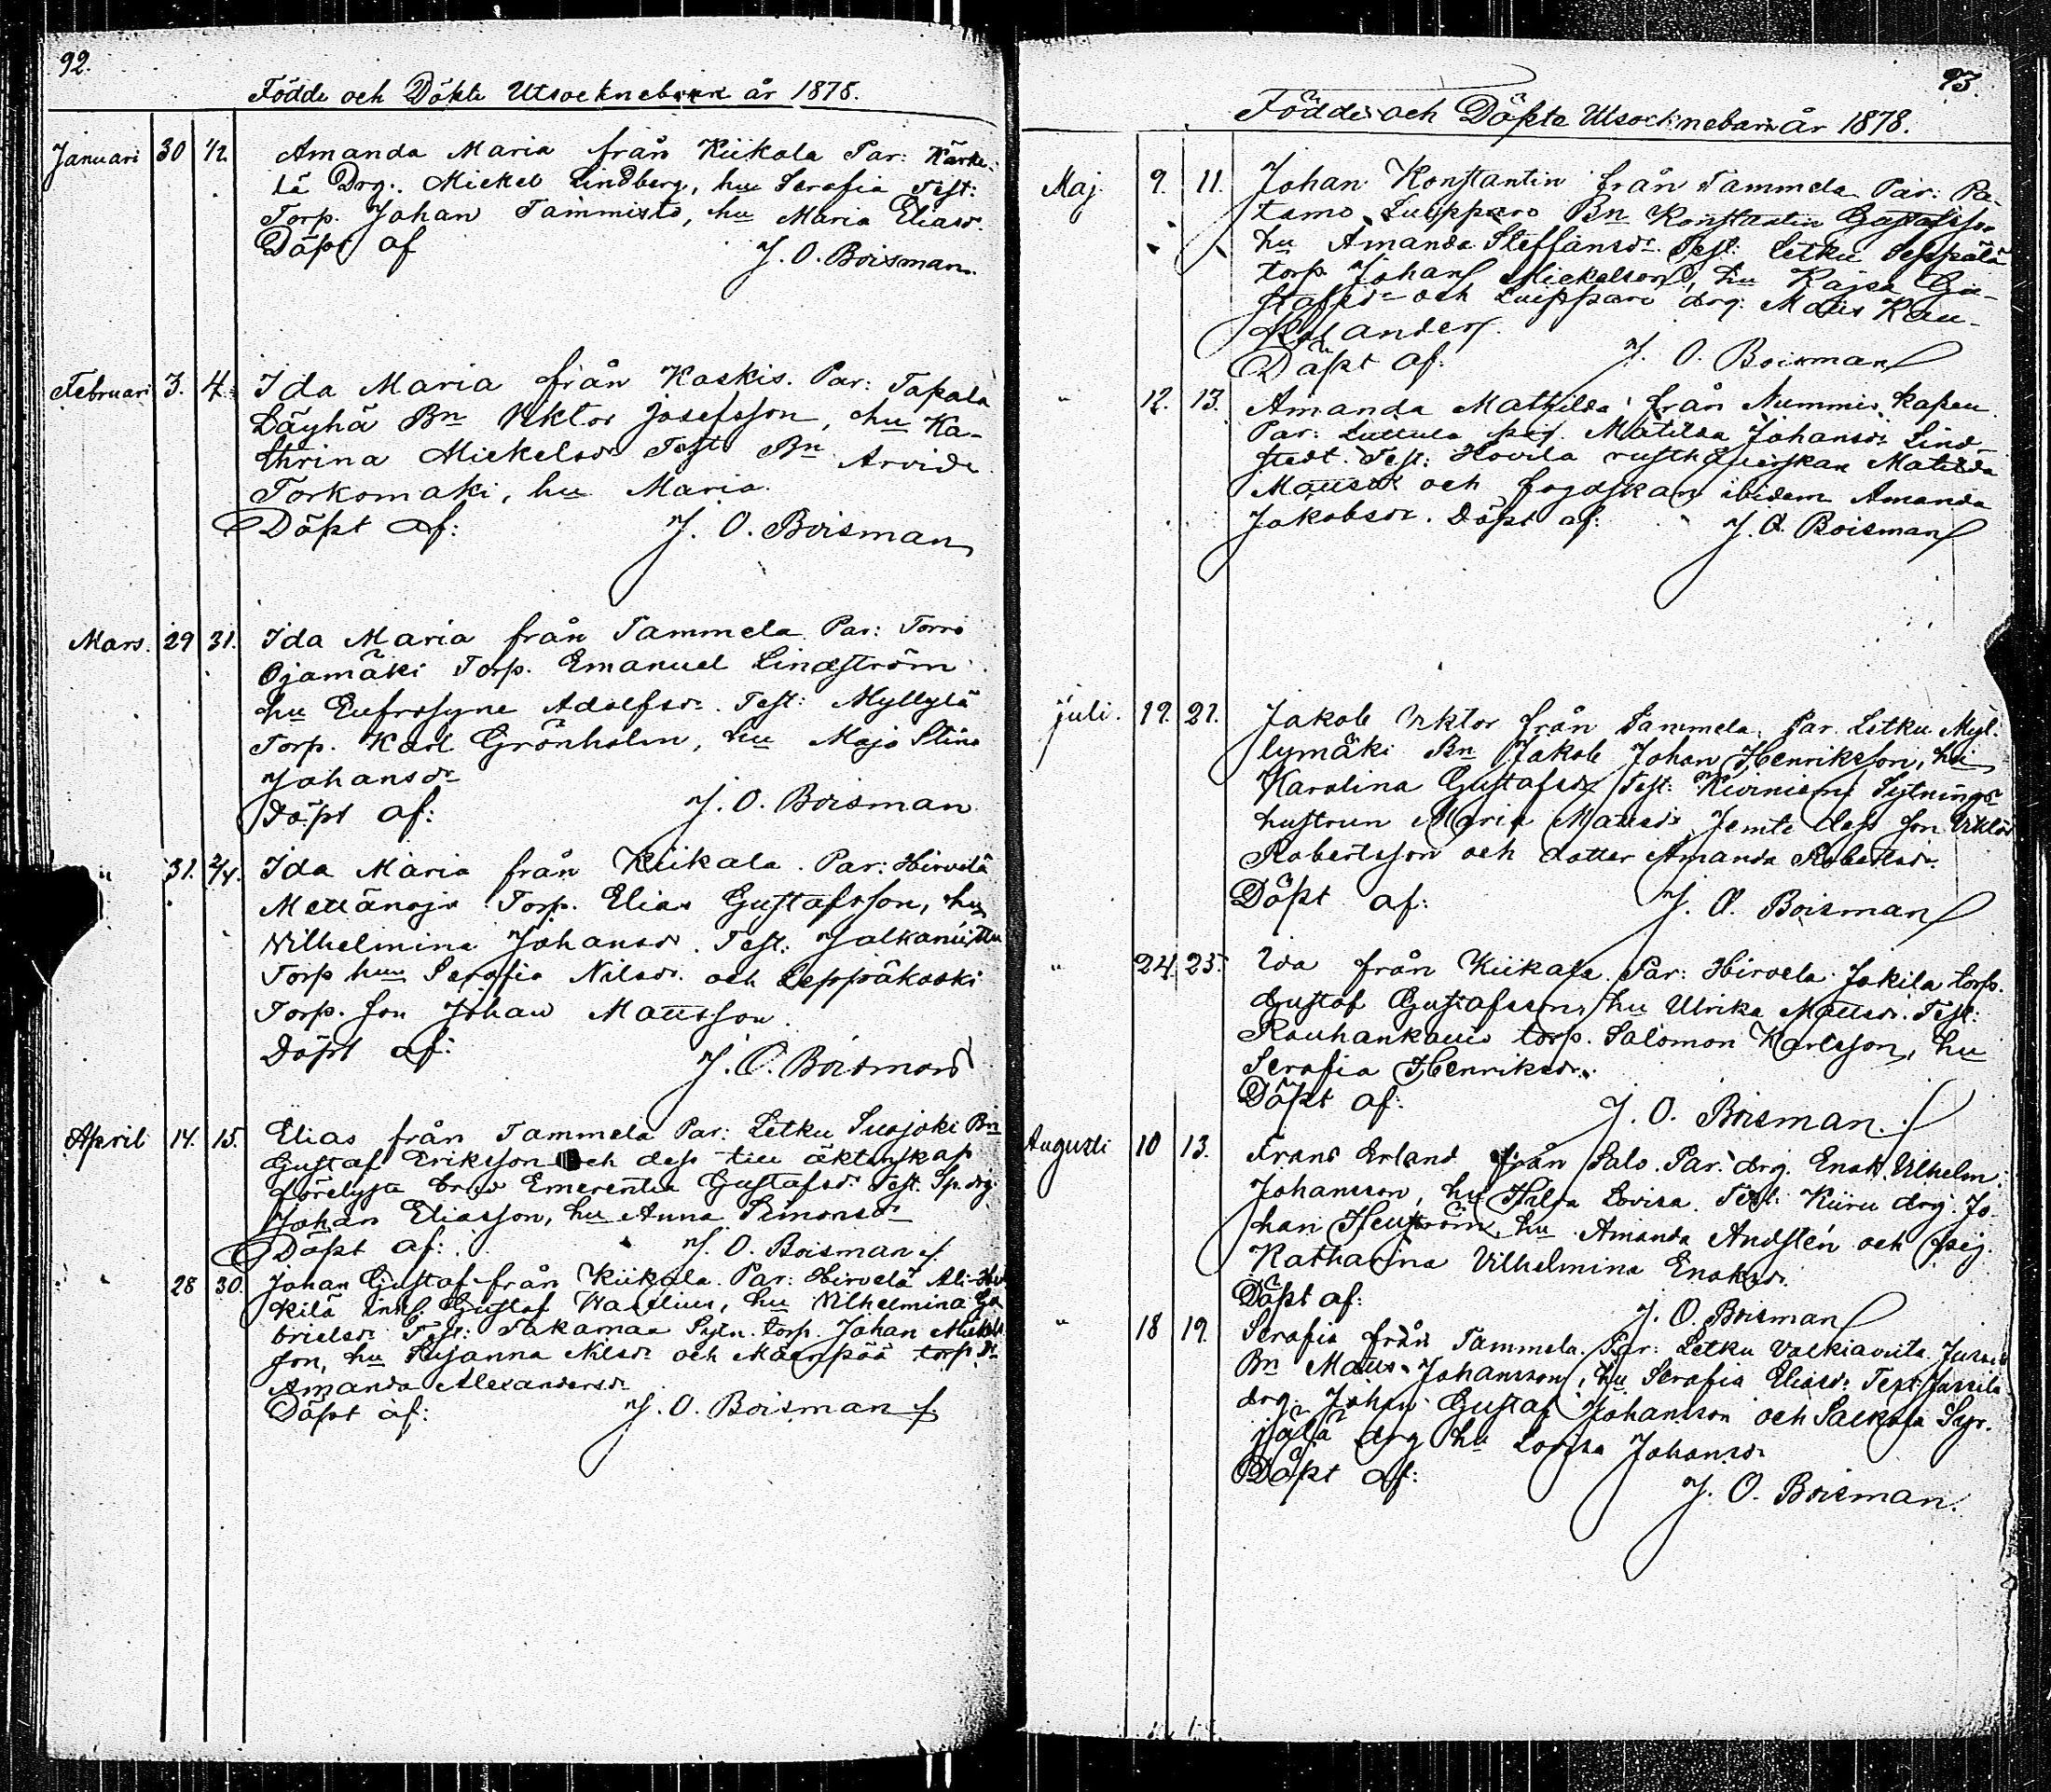 92.
Födde och Döpte Utsocknebarn år 1878.
Januari 30 1/2 Amanda Maria från Kiikala Par: Kärke-
lä Drg. Mickel Lindberg, hu Serafia Test:
Torp. Johan Tammisto, hu Maria Eliasdr.
Döpt af J. O. Boisman.
Februari 3. 4. Ida Maria från Koskis. Par: Tapala
Läyhä Bn Viktor Josefsson, hu Ka-
thrina Mickelsdr Test Bn Arvid
Torkomaki, hu Maria.
Döpt af: J. O. Boisman
Mars. 29 31. Ida Maria från Tammela Par: Torro
Ojamäki Torp. Emanuel Lindström
hu Eufrosyne Adolfsdr. Test: Myllylä
Torp. Karl Grönholm, hu Maja Stina
Johansdr
Döpt af: J. O. Boisman
" 31. 2/4. Ida Maria från Kiikala. Par: Hirvelä
Metsänoja Torp. Elias Gustafsson, hu
Wilhelmina Johansdr. Test: Jalkaniittu
Torp hun Serafia Nilsdr. och Leppäkoski
Torp. son Johan Mattsson.
Döpt af: J. O. Boisman
April 14. 15. Elias från Tammela Par: Letku Suojoki Bn
Gustaf Eriksson och dess till äktenskap
förelysta brud Emerentia Gustafsdr Test. Sp. drg.
Johan Eliasson, hu Anna Simonsdr
Döpt af: J. O. Boisman
" 28 30. Johan Gustaf från Kiikala. Par: Hirvelä Ali-
kilä Inh. Gustaf Waelius, hu Wilhelmina Ga
brielsdr Test: Takamaa Sytn. torp. Johan Mickels
son, hu Susanna Nilsdr och Mäenpää torp. dr
Amanda Alexandersdr
Döpt af: J. O. Boisman
93.
Födde och Döpte Utsocknebarn år 1878.
Maj 9. 11. Johan Konstantin från Tammela Par: Pa-
tamo Luppäro Bn Konstantin Gustafsson
hu Amanda Steffansdr. Test: Letku Seppälä
torp. Johan Mickelson, hu Kajsa Gu-
stafsdr och Luppari drg. Matts Kau-
Döpt af: J. O. Boisman
" 12. 13. Amanda Mathilda från Nummis kapell
Par: Luttula pig. Matilda Johansdr Lind-
stedt. Test: Hovila rusthållerskan Matilda
Mattsdr och fogdskan ibidem Amanda
Jakobsdr. Döpt af: J. O. Boisman
Juli. 19. 21. Jakob Viktor från Tammela. Par. Letku Myl-
lymäki Bn Jakob Johan Henriksson, hu
Karolina Gustafsdr Test: Kiviniemi Sytnings
hustrun Maria Mattsdr jemte dess son Viktor
Robertsson och dotter Amanda Robertsdr.
Döpt af: J. O. Boisman
" 24. 25. Ida från Kiikala. Par: Hirvelä Jokila torp.
Gustaf Gustafsson, hu Ulrika Mattsdr. Test:
Rauhankallio torp. Salomon Karlsson, hu
Serafia Henriksdr.
Döpt af: J. O. Boisman.
Augusti 10 13. Frans Erland från Salo. Par: drg. Enok Vilhelm
Johansson, hu Hilda Lovisa. Test: Kiiru drg. Jo-
han Hellström, hu Amanda Andstén och pig.
Katharina Vilhelmina Enoksdr.
Döpt af: J. O. Boisman
" 18 19. Serafia från Tammela. Par: Letku Valkiaviita
Bn Matts Johansson, hu Serafia Eliasdr. Test: Jussila
drg. Johan Gustaf Johansson och Salkola Syr-
jälä drg hu Lovisa Johansdr
Döpt af: J. O. Boisman.